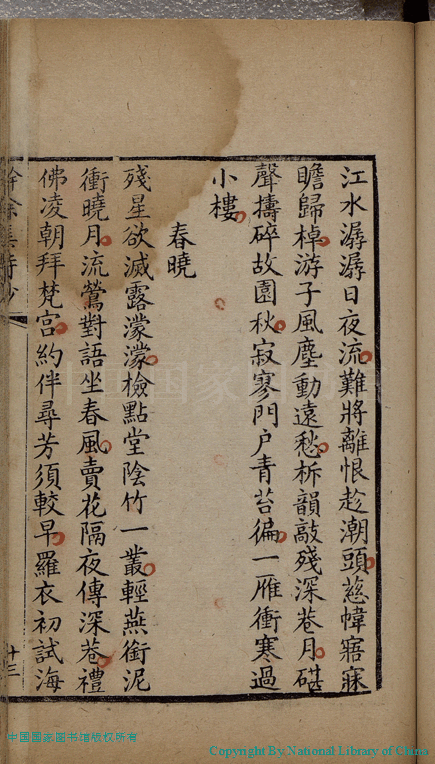 江水潺潺日夜流難將離恨趁潮頭慈幃寤寐
瞻歸棹游子風塵動遠愁柝韻敲殘深巷月碪
聲擣碎故園秋寂寥門户青苔徧一雁衝寒過
小樓
春曉
殘星欲滅露濛濛檢點堂陰竹一叢輕燕銜泥
衝曉月流鶯對語坐春風賣花隔夜傳深巷禮
佛凌朝拜梵宮約伴尋芳須較早羅衣初試海
餘集詩鈔
十三
中国国家图书馆
中国国家图书馆版权所有
Copyright By National Library of China